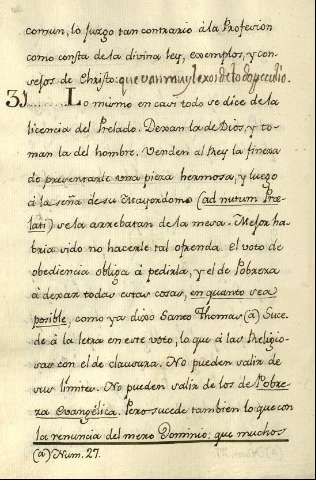 comun, lo juzgo tan contrario à la Profesion
como consta de la divina ley, exemplos, y con-
sejos de Christo: que van muy lexos de todo peculio.
31........ Lo mismo en casi todo se dice de la
licencia del Prelado. Dexan la de Dios, y to-
man la del hombre. Venden al Rey la fineza
de presentarle una pieza hermosa, y luego
à la seña de su Mayordomo (ad nutum Præ-
lati) se la arrebatan de la mesa. Mejor ha-
bria sido no hacerle tal ofrenda. El voto de
obediencia obliga à pedirla, y el de Pobreza
à dexar todas estas cosas, en quanto sea
posible, como ya dixo Santo Thomas (a) Suce-
de à la letra en este voto, lo que à las Religio-
sas con el de clausura. No pueden salir de
sus límites. No pueden salir de los de Pobre-
za Evangélica. Pero sucede tambien lo que con
la renuncia del mero Dominio: que muchos
(a) Num. 27.